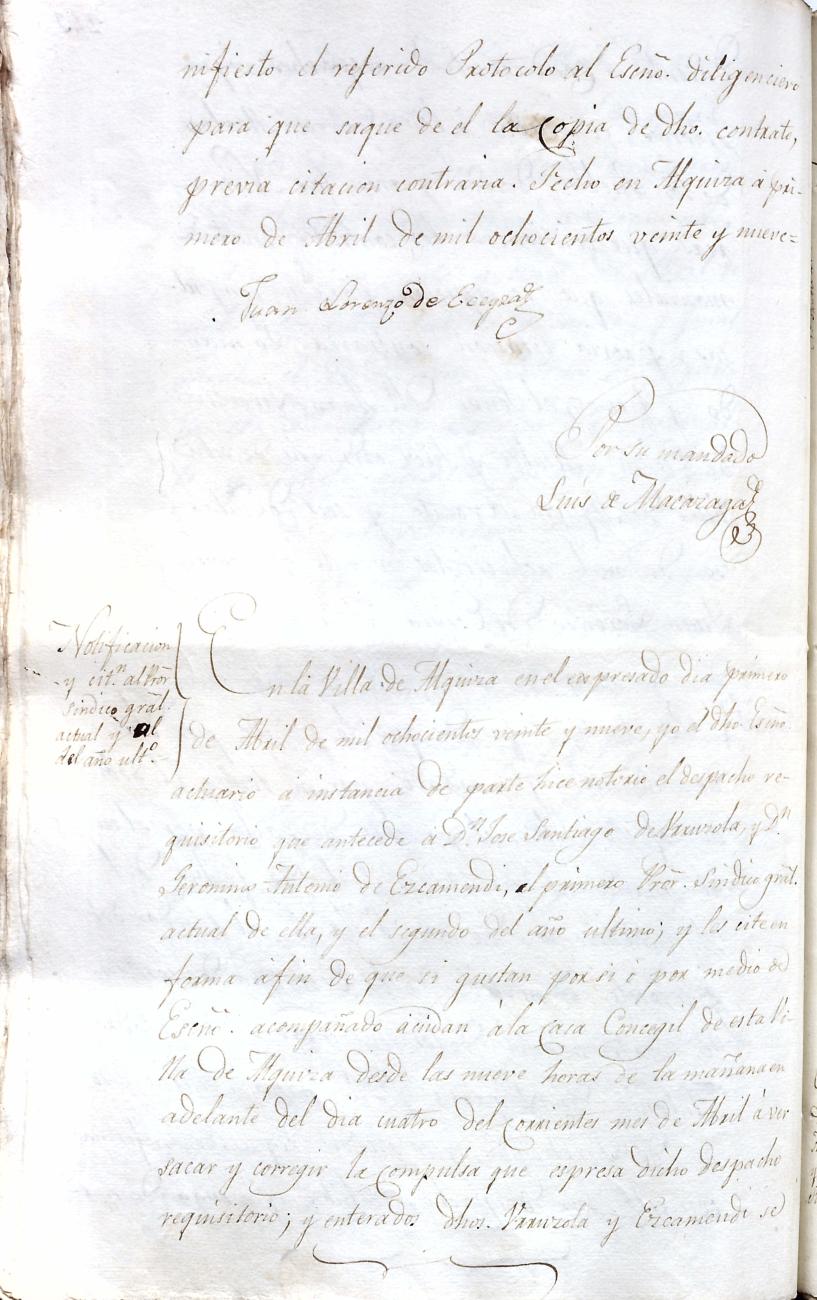 nifiesto el referido Protocolo al Escño. diligenciero
para que saque de él la Copia de dho. contrate,
previa citacion contraria. Fecho en Alquiza á pri-
mero de Abril de mil ochocientos veinte y nueve=
Juan Lorenzo de
Por su mandado
Luis de Macazaga
Notificacion
y citn. al Pror
sindico gral.
actual y al
del año ulto.
En la Villa de Alquiza en el expresado dia primero
de Abril de mil ochocientos veinte y nueve, yo el dho Escño
actuario á instancia de parte hice notorio el despacho re-
quisitorio que antecede á Dn. Jose Santiago de Urruzola, y Dn
Geronimo Antonio de Ezcamendi, el primero Pror. Sindico gral.
actual de ella, y el segundo del año ultimo; y les cite en
forma áfin de que si gustan por si ó por medio de
Escño. acompañado acudan ála Casa Concegil de esta Vi-
lla de Alquiza desde las nueve horas de la mañana en
adelante del dia cuatro del corrientes mes de Abril á ver
sacar y corregir la compulsa que espresa dicho despacho
requisitorio; y enterados dhos. Urruzola y Ezcamendi se